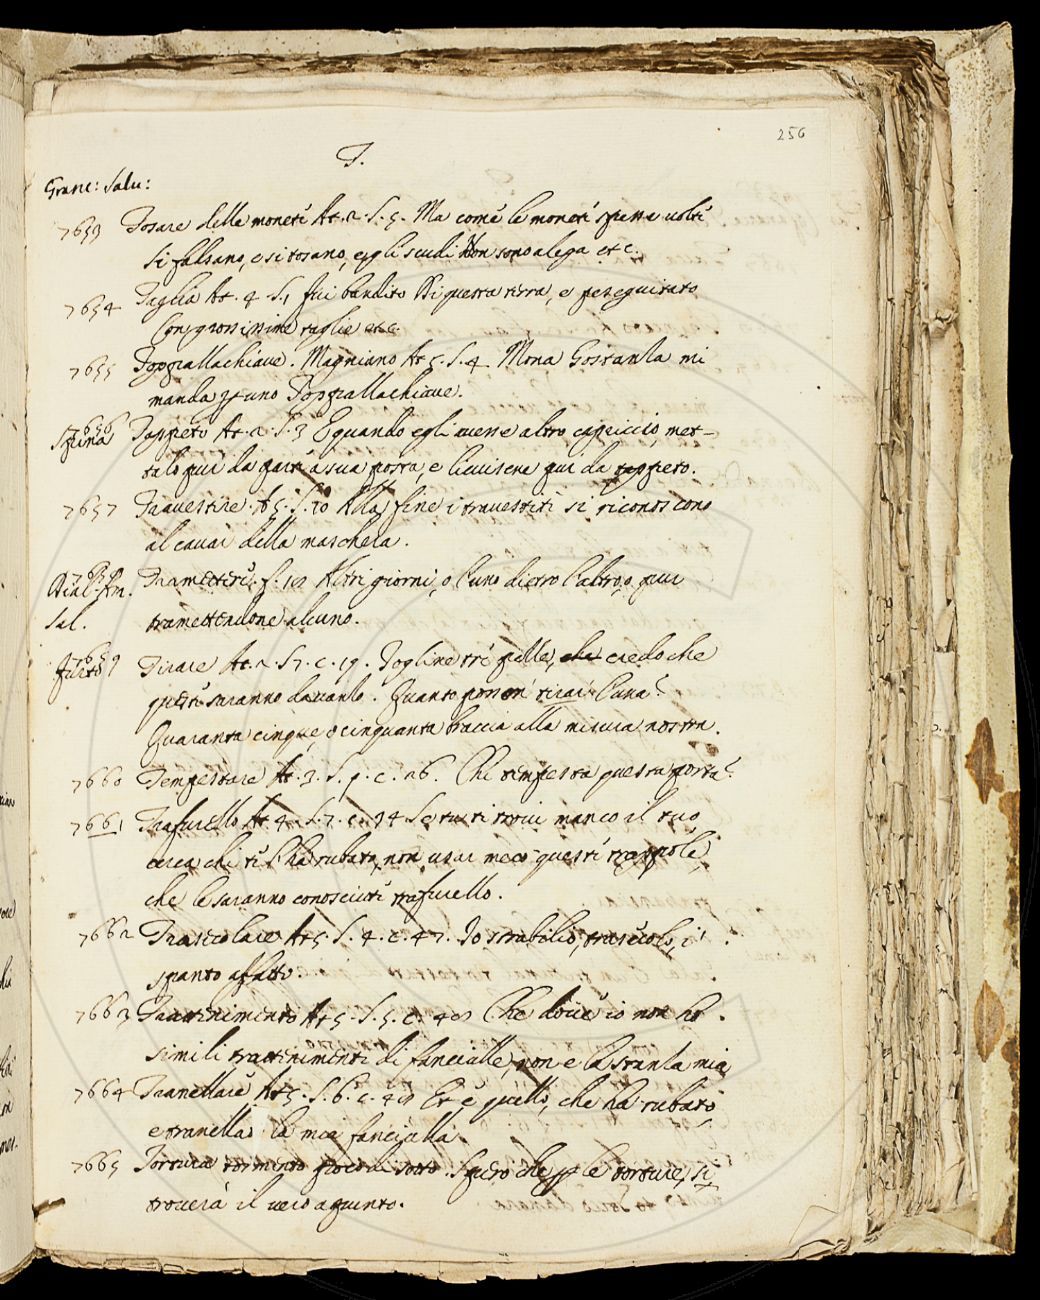 256
T.
Granc: Salu:
7653 Tosare delle moneti At. 2. S. 5. Ma come le moneti spesse uolti
si falsano, e si tosano, e gli scudi Non sono alega etc.
7654 Taglia At. 4 S. 1 fui bandito Di questa terra, e perseguitato
Con grossissime taglie etc.
7655 Toppallachiave. Magniano At 5. S. 4. Mona Gostanza mi
manda per uno Toppallachiave.
7656 Tappeto At. 2. S. 3 E quando egli auesse altro capriccio, met-
Spina talo pur da parte a sua posta, e seruisene pur da tappeto.
7657 Trauestire. At 5. S. 10 Alla fine i trauestiti si riconoscono
al cauar della maschera.
7658 Tramettere. f. 10 Altri giorni, o l'uno dietro l'altro, o pur
Dial. Am.
Sal. tramettendone alcuno.
7659 Tirare At. 2 S. 7. c. 19. Togline tre pelle, che credo che
Furto questi saranno dauanzo. Quanto ponon tirar l'una?
Quaranta cinque, o cinquanta braccia alla misura nostra.
7660 Tempestare At. 3. S. p. c. 26. Chi tempesta questa porta?
7661 Trafurello At. 4. S. 7. c. 34 Se tu ti troui manco il tuo
cerca chi ti l'ha rubato, non usar meco questi trappole,
che le saranno conosciuti trafurello.
7662 Trasecolare At 5. S. 4. c. 47. Io strabilio, trasecolo, i'
spanto affatto.
7663 Trattenimento At 5. S. 5. c. 48 Che doue io non ho
simili trattenimenti di fanciulle, non è la stanza mia
7664 Tranellare At 5. S. 6. c. 48 Et è quello, che ha rubato
e tranella la mia fanciulla
7665 Tortura tormento Spero che per le torture, si
trouerà il uero apunto.